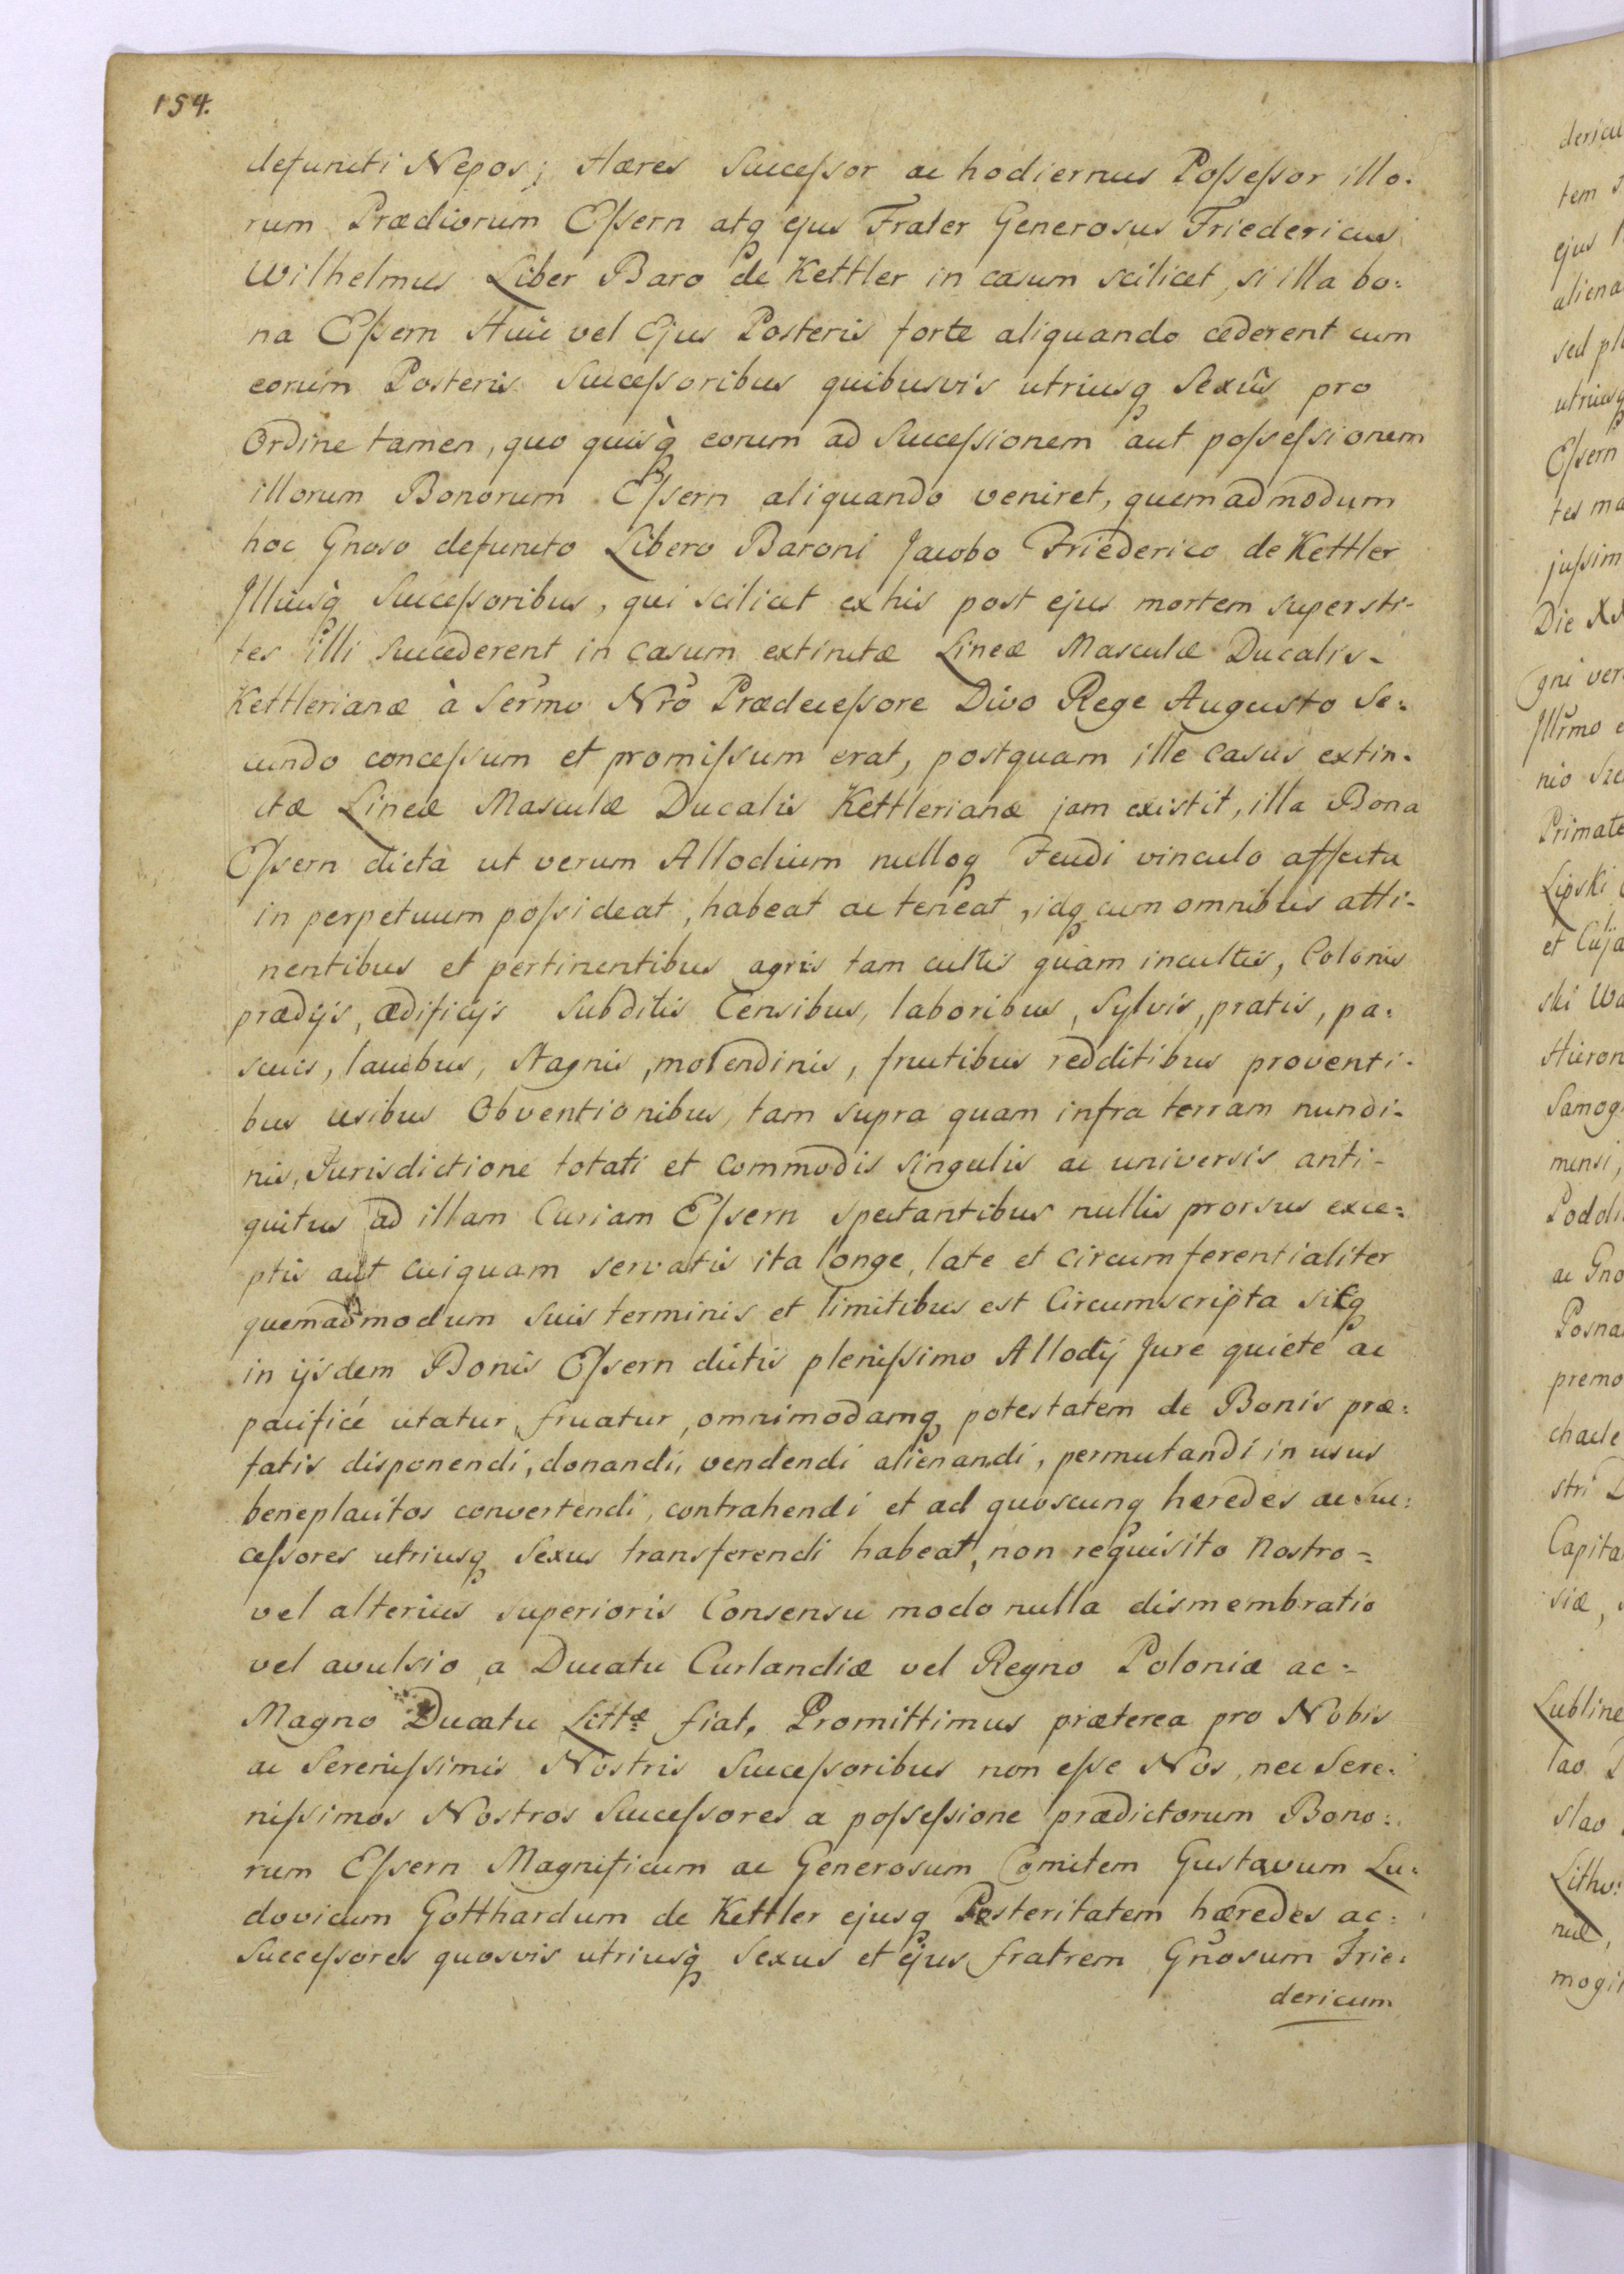 154.
defuncti Nepos; Hæres Succeſsor ac hodiernus Poſseſsor illo:
rum Prædiorum Eſsern atq ejus Frater Generosus Friedericus
Wilhelmus Liber Baro de Kettler in casum scilicet, si illa bo:
na Eſsern Huic vel Ejus Posteris forte aliquando cederent cum
eorum Posteris Succeſsoribus quibusvis utriusq Sexûs pro
Ordine tamen, quo quisq̀ eorum ad Succeſsionem aut poſseſsionem
illorum Bonorum Eſsern aliquando veniret, quemadmodum
hoc Gnoso defuncto Libero Baroni Jacobo Friederico de Kettler
Illiusq̀ Succeſsoribus, qui scilicet ex his post ejus mortem supersti-
tes illi Succederent in casum extinctæ Lineæ Masculæ Ducalis-
Kettlerianæ à Serm̃o Nrõ Prædeceſsore Divo Rege Augusto Se:
cundo conceſsum et promiſsum erat, postquam ille casus extin-
ctæ Lineæ Masculæ Ducalis Kettlerianæ jam existit, illa Bona
Eſsern dicta ut verum Allodium nulloq Feudi vinculo affecta
in perpetuum poſsideat, habeat ac teneat, idq cum omnibus atti-
nentibus et pertinentibus agris tam cultis quam incultis, Colonis
prædijs, ædificijs Subditis Censibus, laboribus, Sylvis, pratis, pa:
scuis, lacubus, Stagnis, molendinis, fructibus redditibus proventi-
bus usibus Obventionibus, tam supra quam infra terram nundi-
nis, Jurisdictione totati et Commodis singulis ac universis anti-
quitus ad illam Curiam Eſsern spectantibus nullis prorsus exce:
ptis aut cuiquam servatis ita longe, late et circumferentialiter
quemadmodum suis terminis et limitibus est Circumscripta sicq
in ijsdem Bonis Eſsern dictis pleniſsimo Allodij Jure quiéte ac
pacificé utatur, fruatur, omnimodamq potestatem de Bonis præ:
fatis disponendi, donandi, vendendi alienandi, permutandi in usus
beneplacitos convertendi, contrahendi et ad quoscunq heredes ac Suc:
ceſsores utriusq Sexus transferendi habeat, non requisito Nostro-
vel alterius superioris Consensu modo nulla dismembratio
vel avulsio a Ducatu Curlandiæ vel Regno Poloniæ ac-
Magno Ducatu Littæ fiat. Promittimus præterea pro Nobis
ac Sereniſsimis Nostris Succeſsoribus non eſse Nos, nec Sere:
niſsimos Nostros Succeſsores a poſseſsione prædictorum Bono:
rum Eſsern Magnificum ac Generosum Comitem Gustavum Lu:
dovicum Gotthardum de Kettler ejusq Posteritatem hæredes ac:
Succeſsores quosvis utriusq̀ Sexus et ejus fratrem Gnõsum Frie:
dericum
tem
ejus
aliena
sed
utriusq
Eſsern
juſsim
Die
Primate
Lipski
et Cuja
Hieron
Samog
mensi,
ac Gno
Posna
premo
Capita
siæ,
Lubline
slao
Lithv: